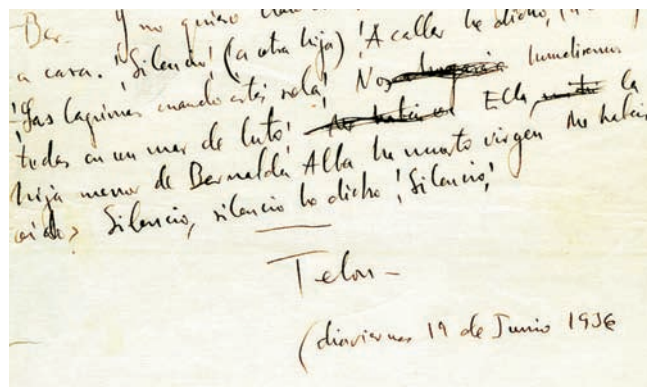 Ber- Y no quiero
a cara. ¡Silencio! (a otra hija) ¡A callar he dicho!
¡Las lagrimas cuando estés sola! Nos hundiremos
todas en un mar de luto! Ella, la
hija menor de Bernalda Alba ha muerto virgen Me habeis
oido? Silencio, silencio he dicho ¡Silencio!
Telon-
(dia viernes 19 de Junio 1936